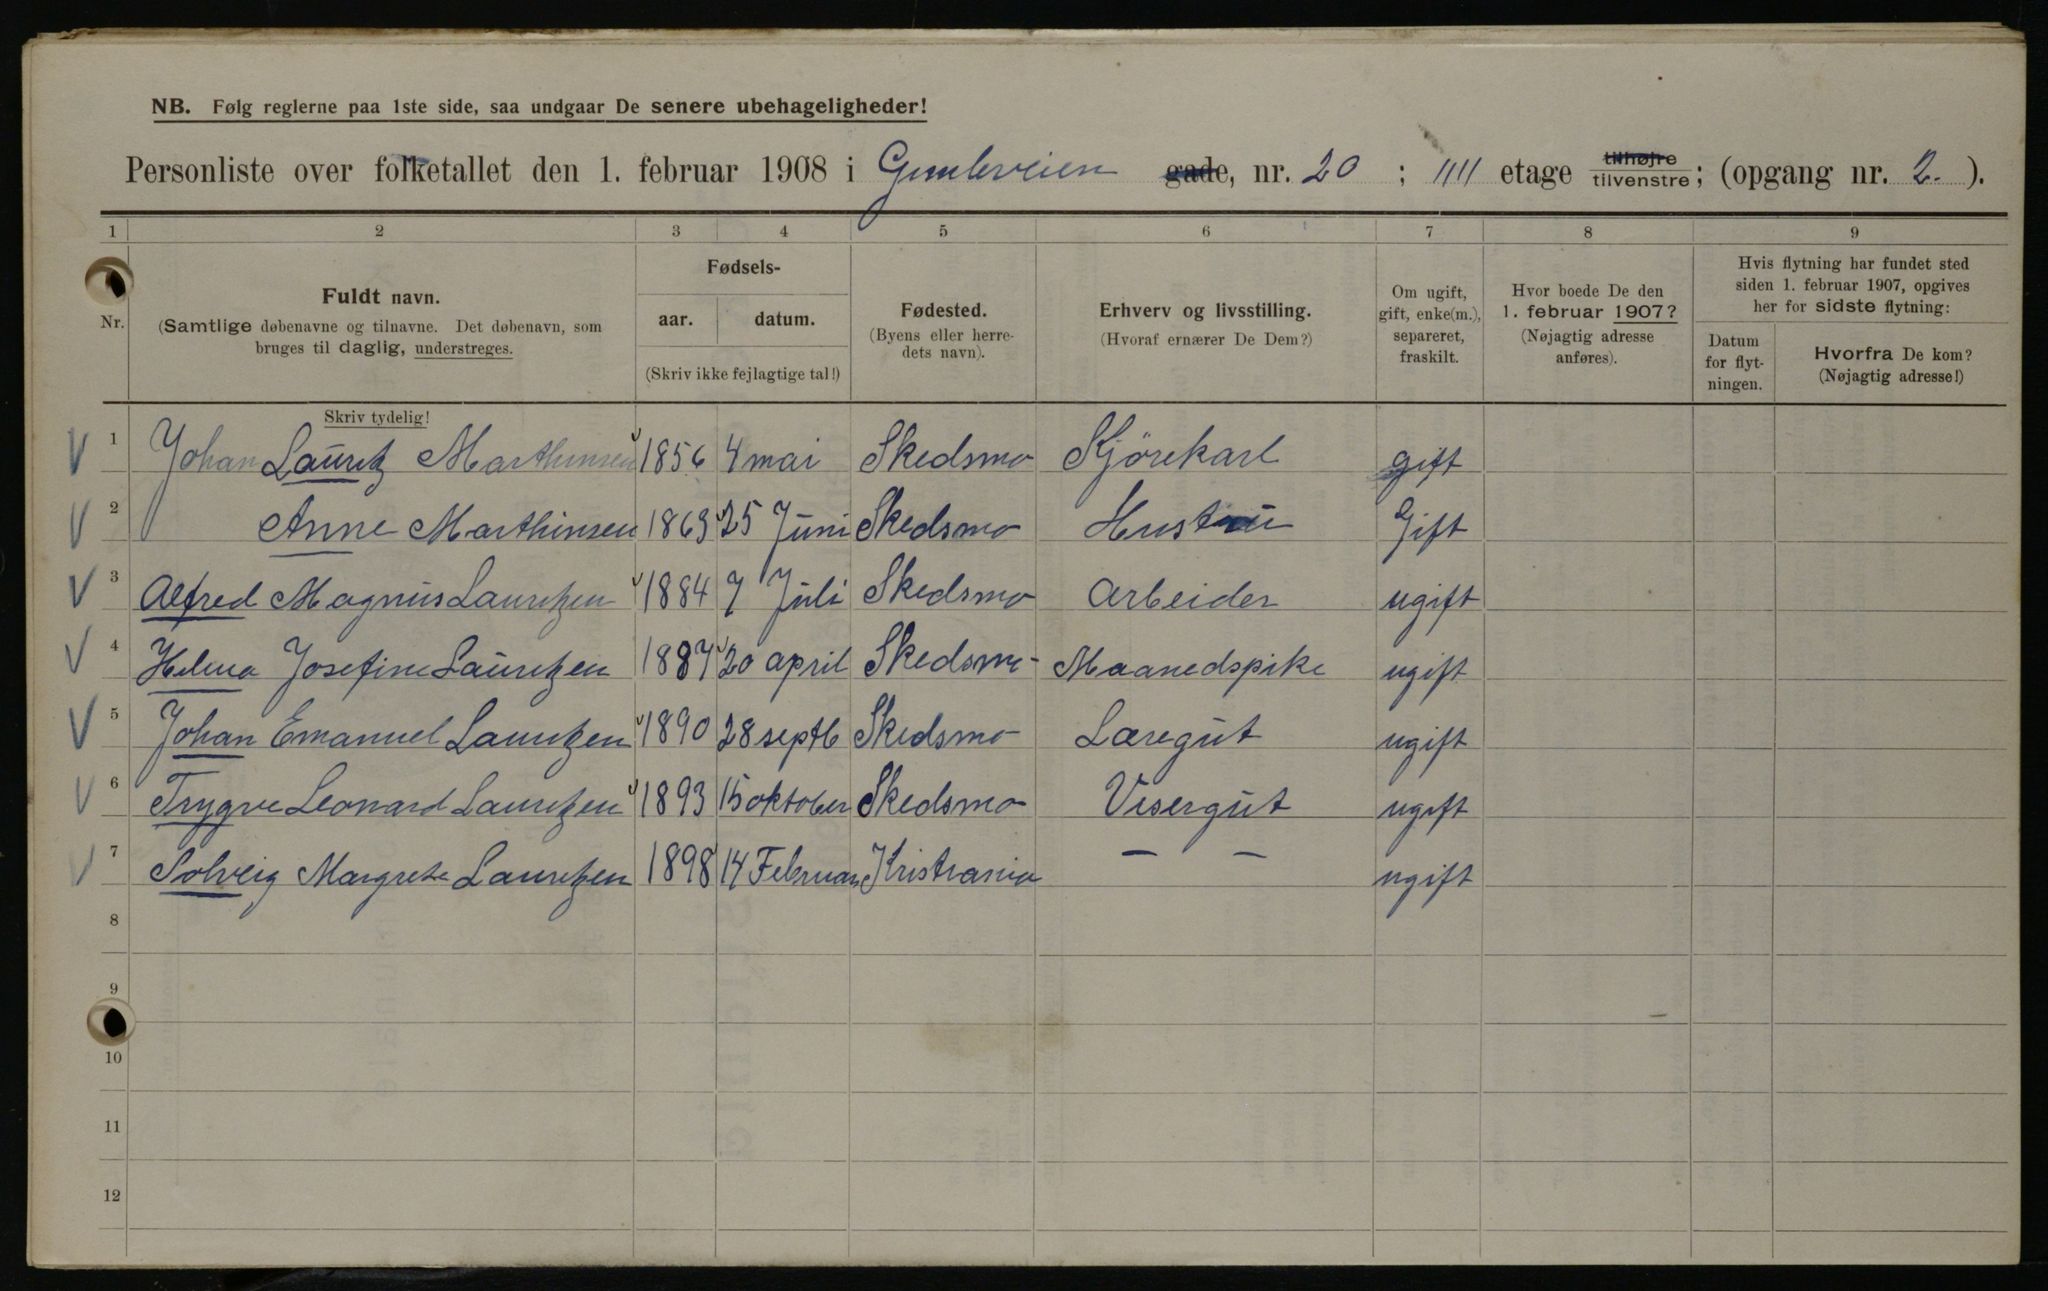 NB. Følg reglerne paa 1ste side, saa undgaar De senere ubehageligheder!
Personliste over folketallet den 1. februar 1908 i Gimleveien gade, nr. 20 ; IIII etage tilhøjre tilvenstre; (opgang nr. 2. ).
1 2 3 4 5 6 7 8 9
Nr.
Fuldt navn.
(Samtlige døbenavne og tilnavne. Det døbenavn, som
bruges til daglig, understreges.
Fødsels-
aar. datum.
(Skriv ikke fejlagtige tal!)
Fødested.
(Byens eller herre-
dets navn).
Erhverv og livsstilling.
(Hvoraf ernærer De Dem?)
Om ugift,
gift, enke(m.),
separeret,
fraskilt.
Hvor boede De den
1. februar 1907?
(Nøjagtig adresse
anføres).
Hvis flytning har fundet sted
siden 1. februar 1907, opgives
her for sidste flytning:
Datum
for flyt-
ningen.
Hvorfra De kom?
(Nøjagtig adresse!)
Skriv tydelig!
1 Johan Lauritz Marthinsen 1856 4 mai Skedsmo Kjörekarl gift
2 Anne Marthinsen 1863 25 Juni Skedsmo Hustru Gift
3 Alfred Magnus Lauritzen 1884 7 Juli Skedsmo Arbeider ugift
4 Helma Josefine Lauritzen 1887 20 april Skedsmo Maanedspike ugift
5 Johan Emanuel Lauritzen 1890 28 septb Skedsmo Læregut ugift
6 Trygve Leonard Lauritzen 1893 15 oktober Skedsmo Visergut ugift
7 Solveig Margrete Lauritzen 1898 14 Februar Kristiania — — ugift
8
9
10
11
12